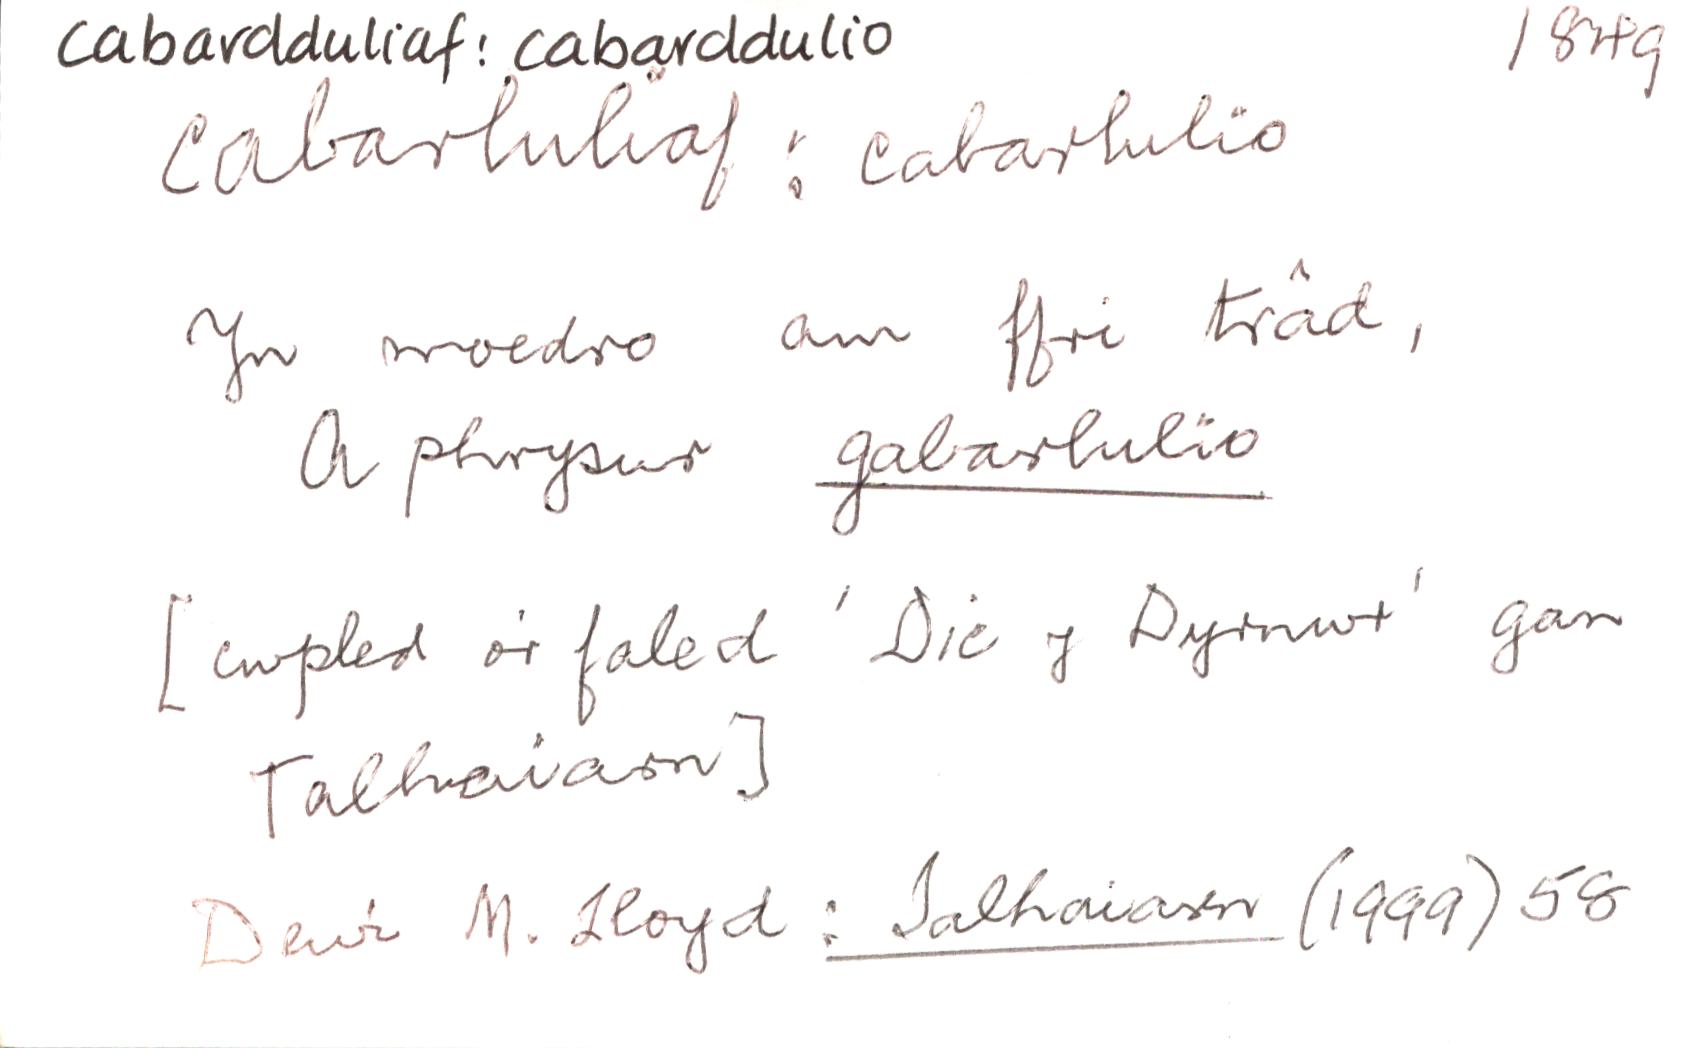 cabardduliaf: cabarddulio 1849
cabarlulïaf : cabarlulïo
Yn moedro am ffri trâd,
A phrysur gabarlulïo
[cwpled o'r faled 'Dic y Dyrnwr' gan
Talhaiarn]
Dewi M. Lloyd : Talhaiarn (1999) 58